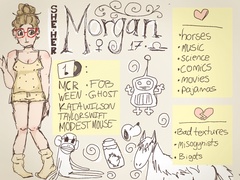 SHE HER
Morgan
17 ·
MCR · FOB
WEEN · GHOST
KATAWILSON
TAYLOR SWIFT
MODEST MOUSE
• horses
• MUSIC
• science
• COMICS
• movies
• pajamas
• Bad textures
• misogynists
• Bigots